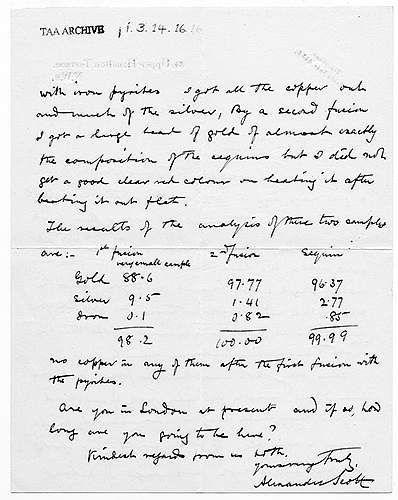 TAA ARCHIVE i.3.14.16
Upper Hamilton Terrace.
N.W.
with iron pyrites I got all the copper out
and much of the silver, By a second fusion
I got a large bead of gold of almost exactly
the composition of the sequins but I did not
get a good clear red colour on heating it after
beating it out flat.
The results of the analysis of these two samples
are:- 1st fusion 2nd fusion Sequin
very small sample
Gold 88.6 97.77 96.37
Silver 9.5 1.41 2.77
Iron 0.1 0.82 .85
98.2 100.00 99.99
no copper in any of them after the first fusion with
the pyrites.
Are you in London at present and if so, how
long are you going to be here?
Kindest regards from us both.
Yours very truly,
Alexander Scott